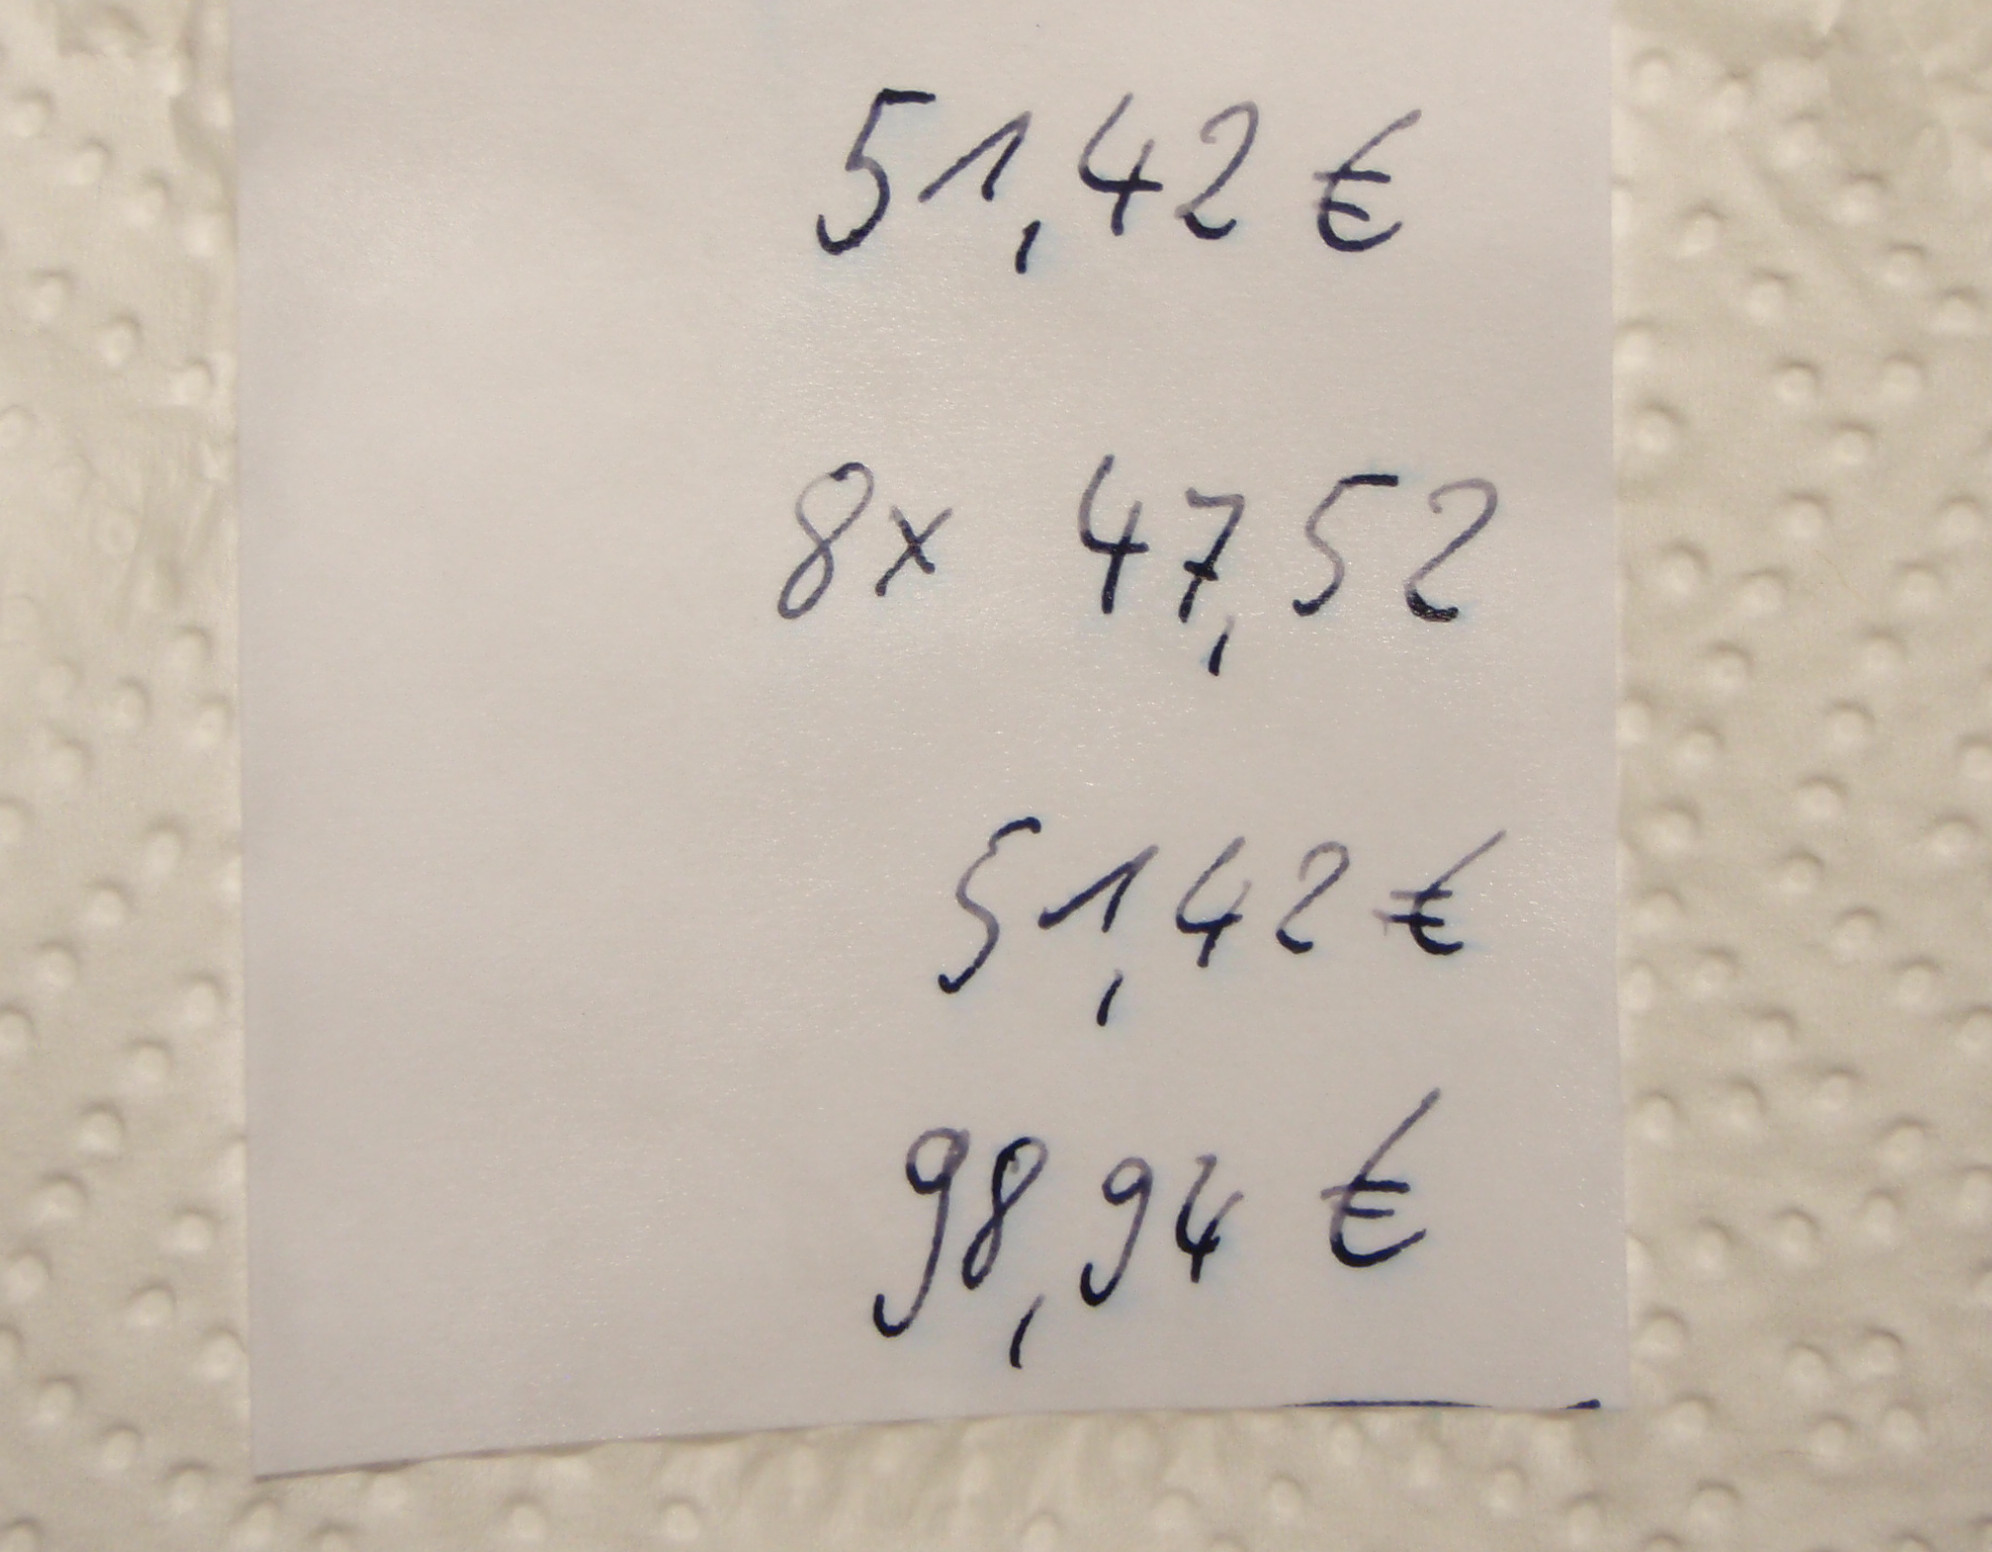 51,42 €
8x 47,52
51,42 €
98,94 €